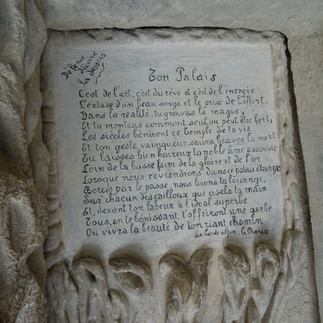 Défense
d'écrire
là-dessus
Ton Palais
C'est de l'art, c'est du rêve et c'est de l'énergie
L'extase d'un beau songe et le prix de l'effort.
Dans la réalité, tu gravas la magie,
Et tu montras comment seul on peut être fort,
Les siècles béniront ce temple de la vie
Et ton geste vainqueur saura braver la mort
Tu laisses bien heureux ta noble âme assouvie
Loin de la basse faim de la gloire et de l'or
Lorsque nous reviendrons dans ce palais étrange
par le passé, nous lirons ta louange,
Sur chacun des cailloux que cisela ta main
Et, devant ton labeur à l'idéal superbe
Tous, en te bénissant, t'offriront une gerbe
Où vivra la beauté de ton riant chemin